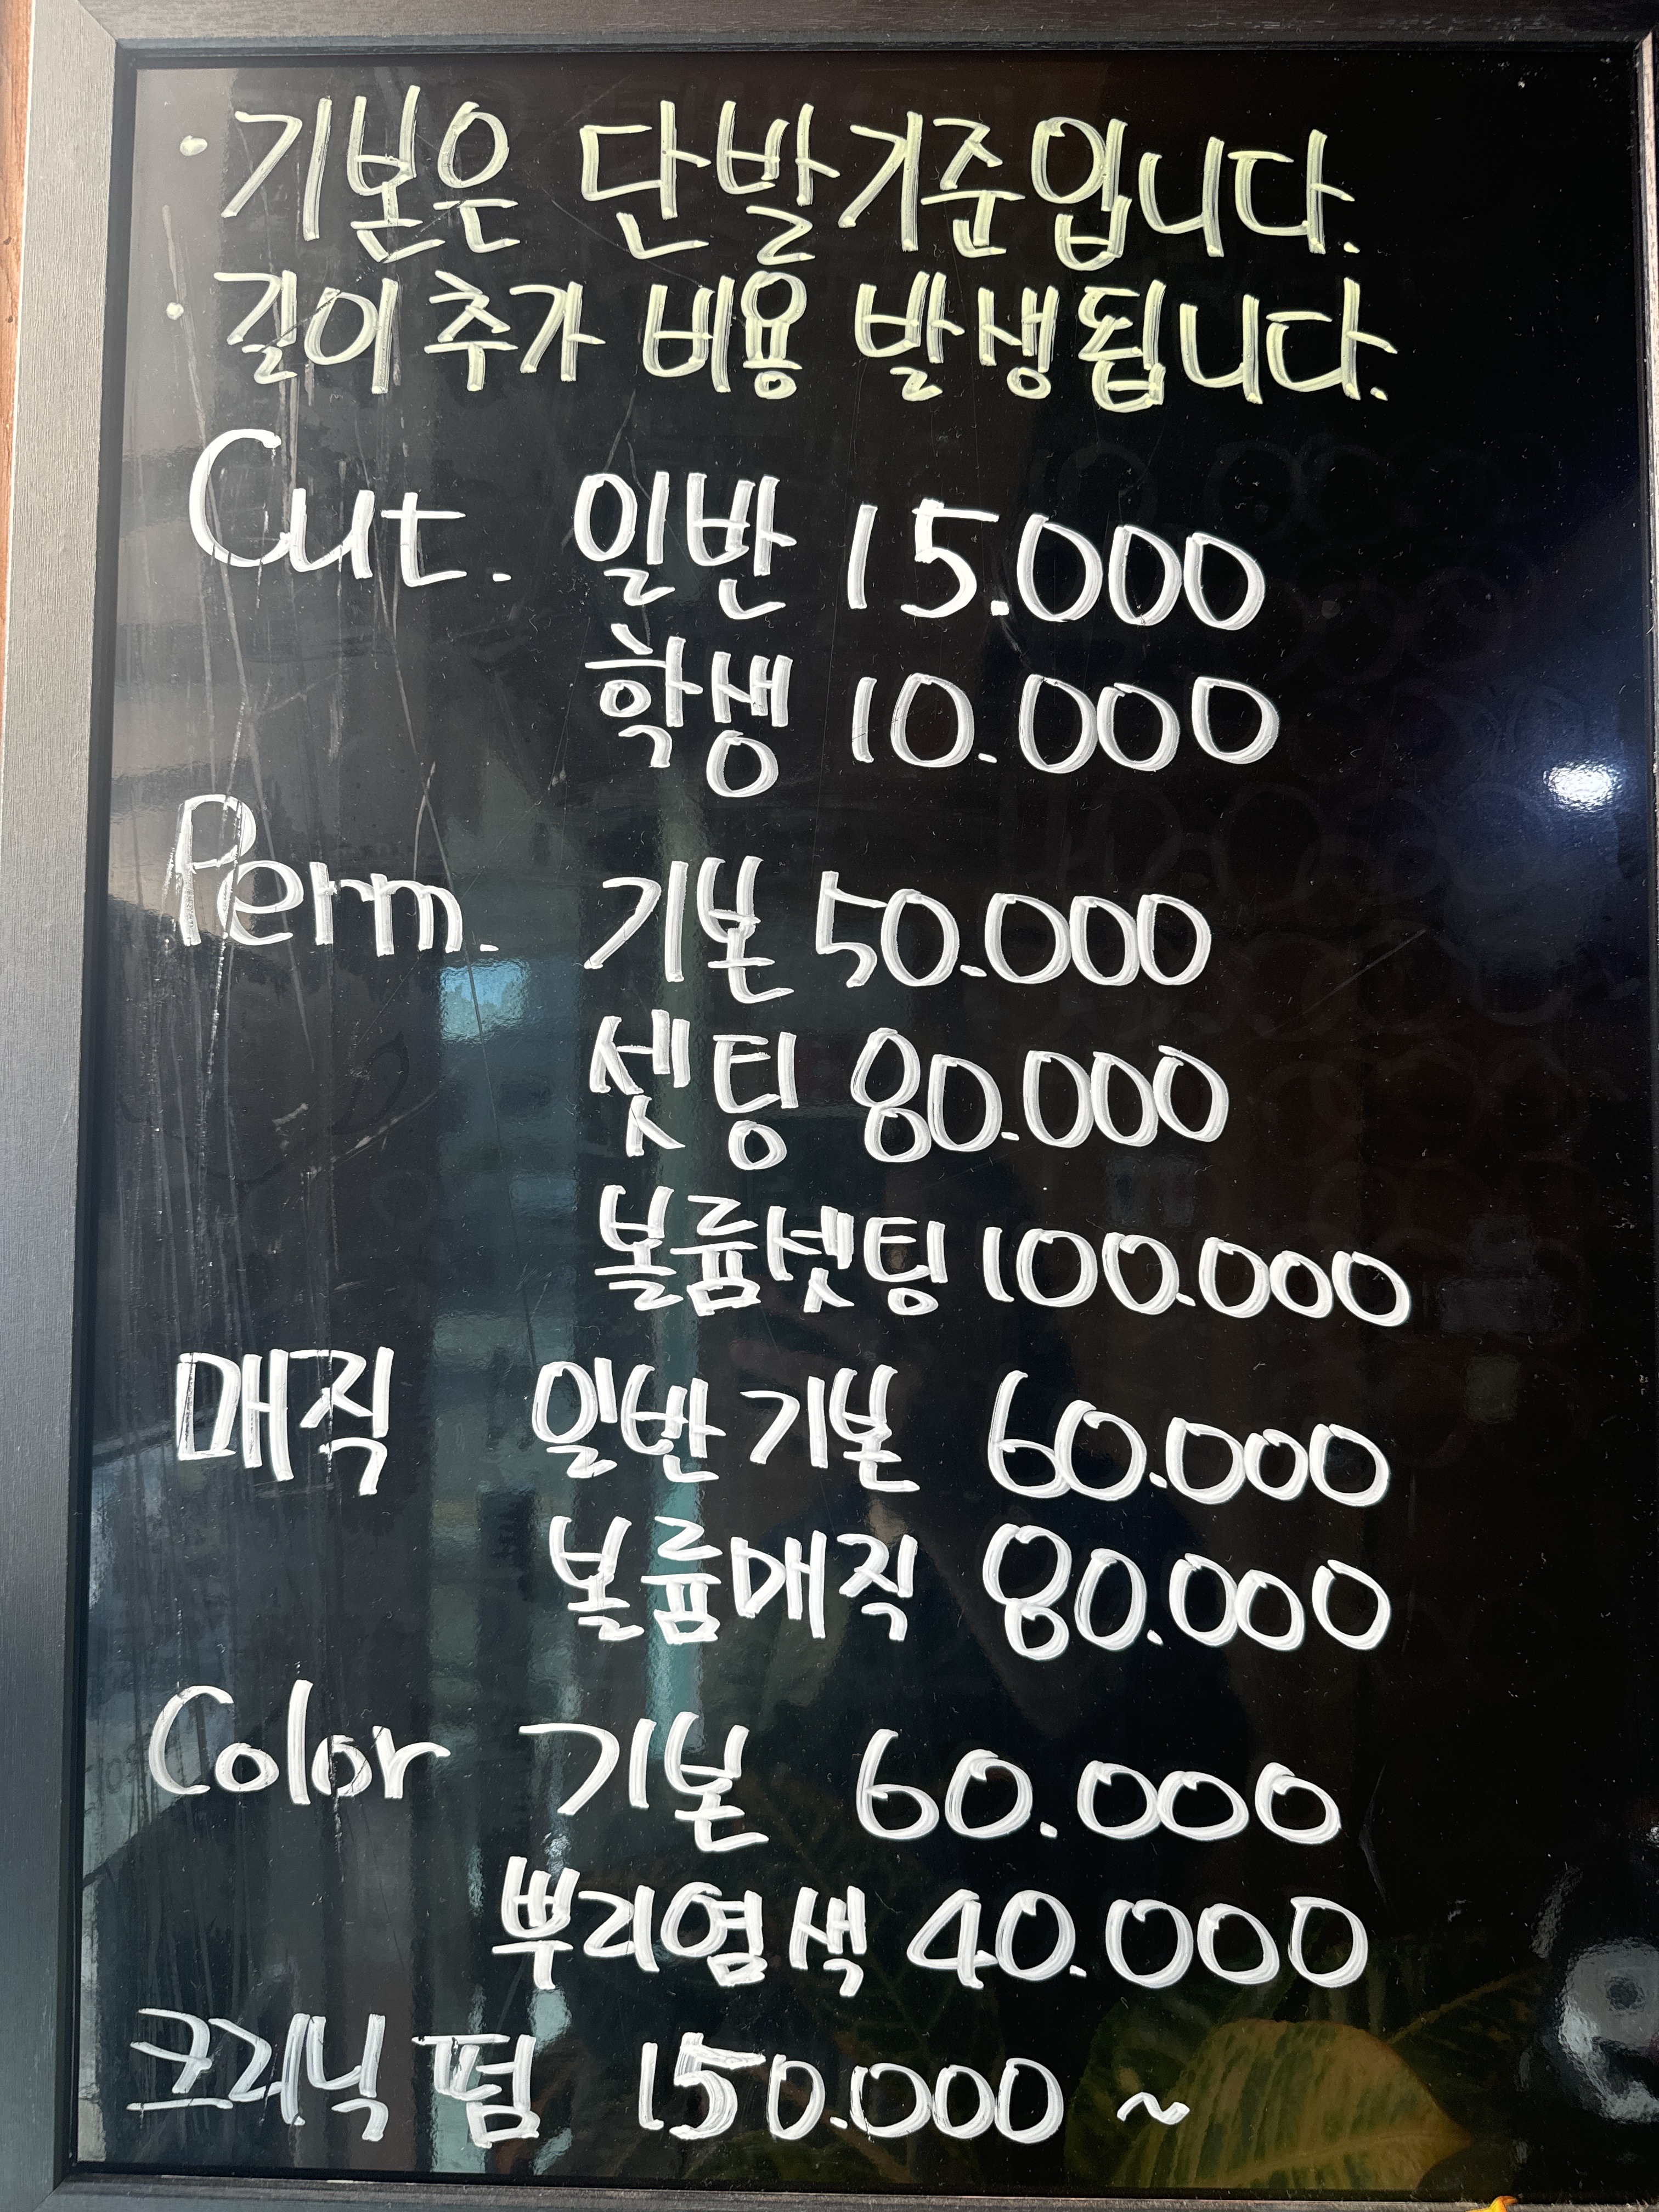 · 기본은 단발기준입니다.
· 길이 추가 비용 발생됩니다.
Cut. 일반 15.000
학생 10.000
Perm. 기본 50.000
셋팅 80.000
볼륨셋팅 100.000
매직 일반 기본 60.000
볼륨매직 80.000
Color 기본 60.000
뿌리염색 40.000
크리닉 펌 150.000 ~